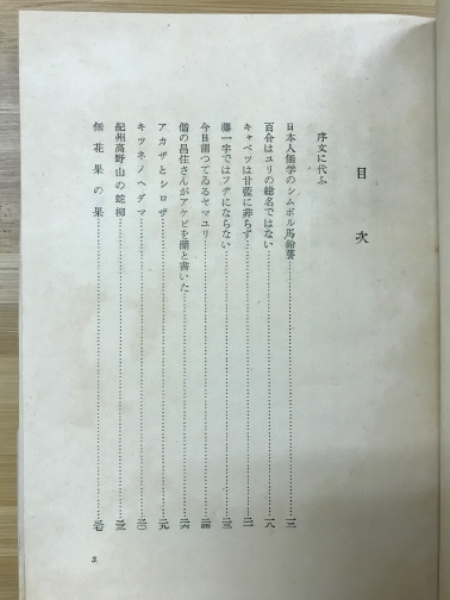 目次
序文に代ふ
日本人植学のシムボル馬鈴薯……一三
百合はユリの総名ではない……一八
キャベツは甘藍に非らず……二一
藤一字ではフヂにならない……二三
今日謂つてゐるヤマユリ……二四
僧の昌住さんがアケビを蘭と書いた……二六
アカザとシロザ……二九
キツネノヘダマ……三〇
紀州高野山の蛇柳……三三
無花果の果……三七
3